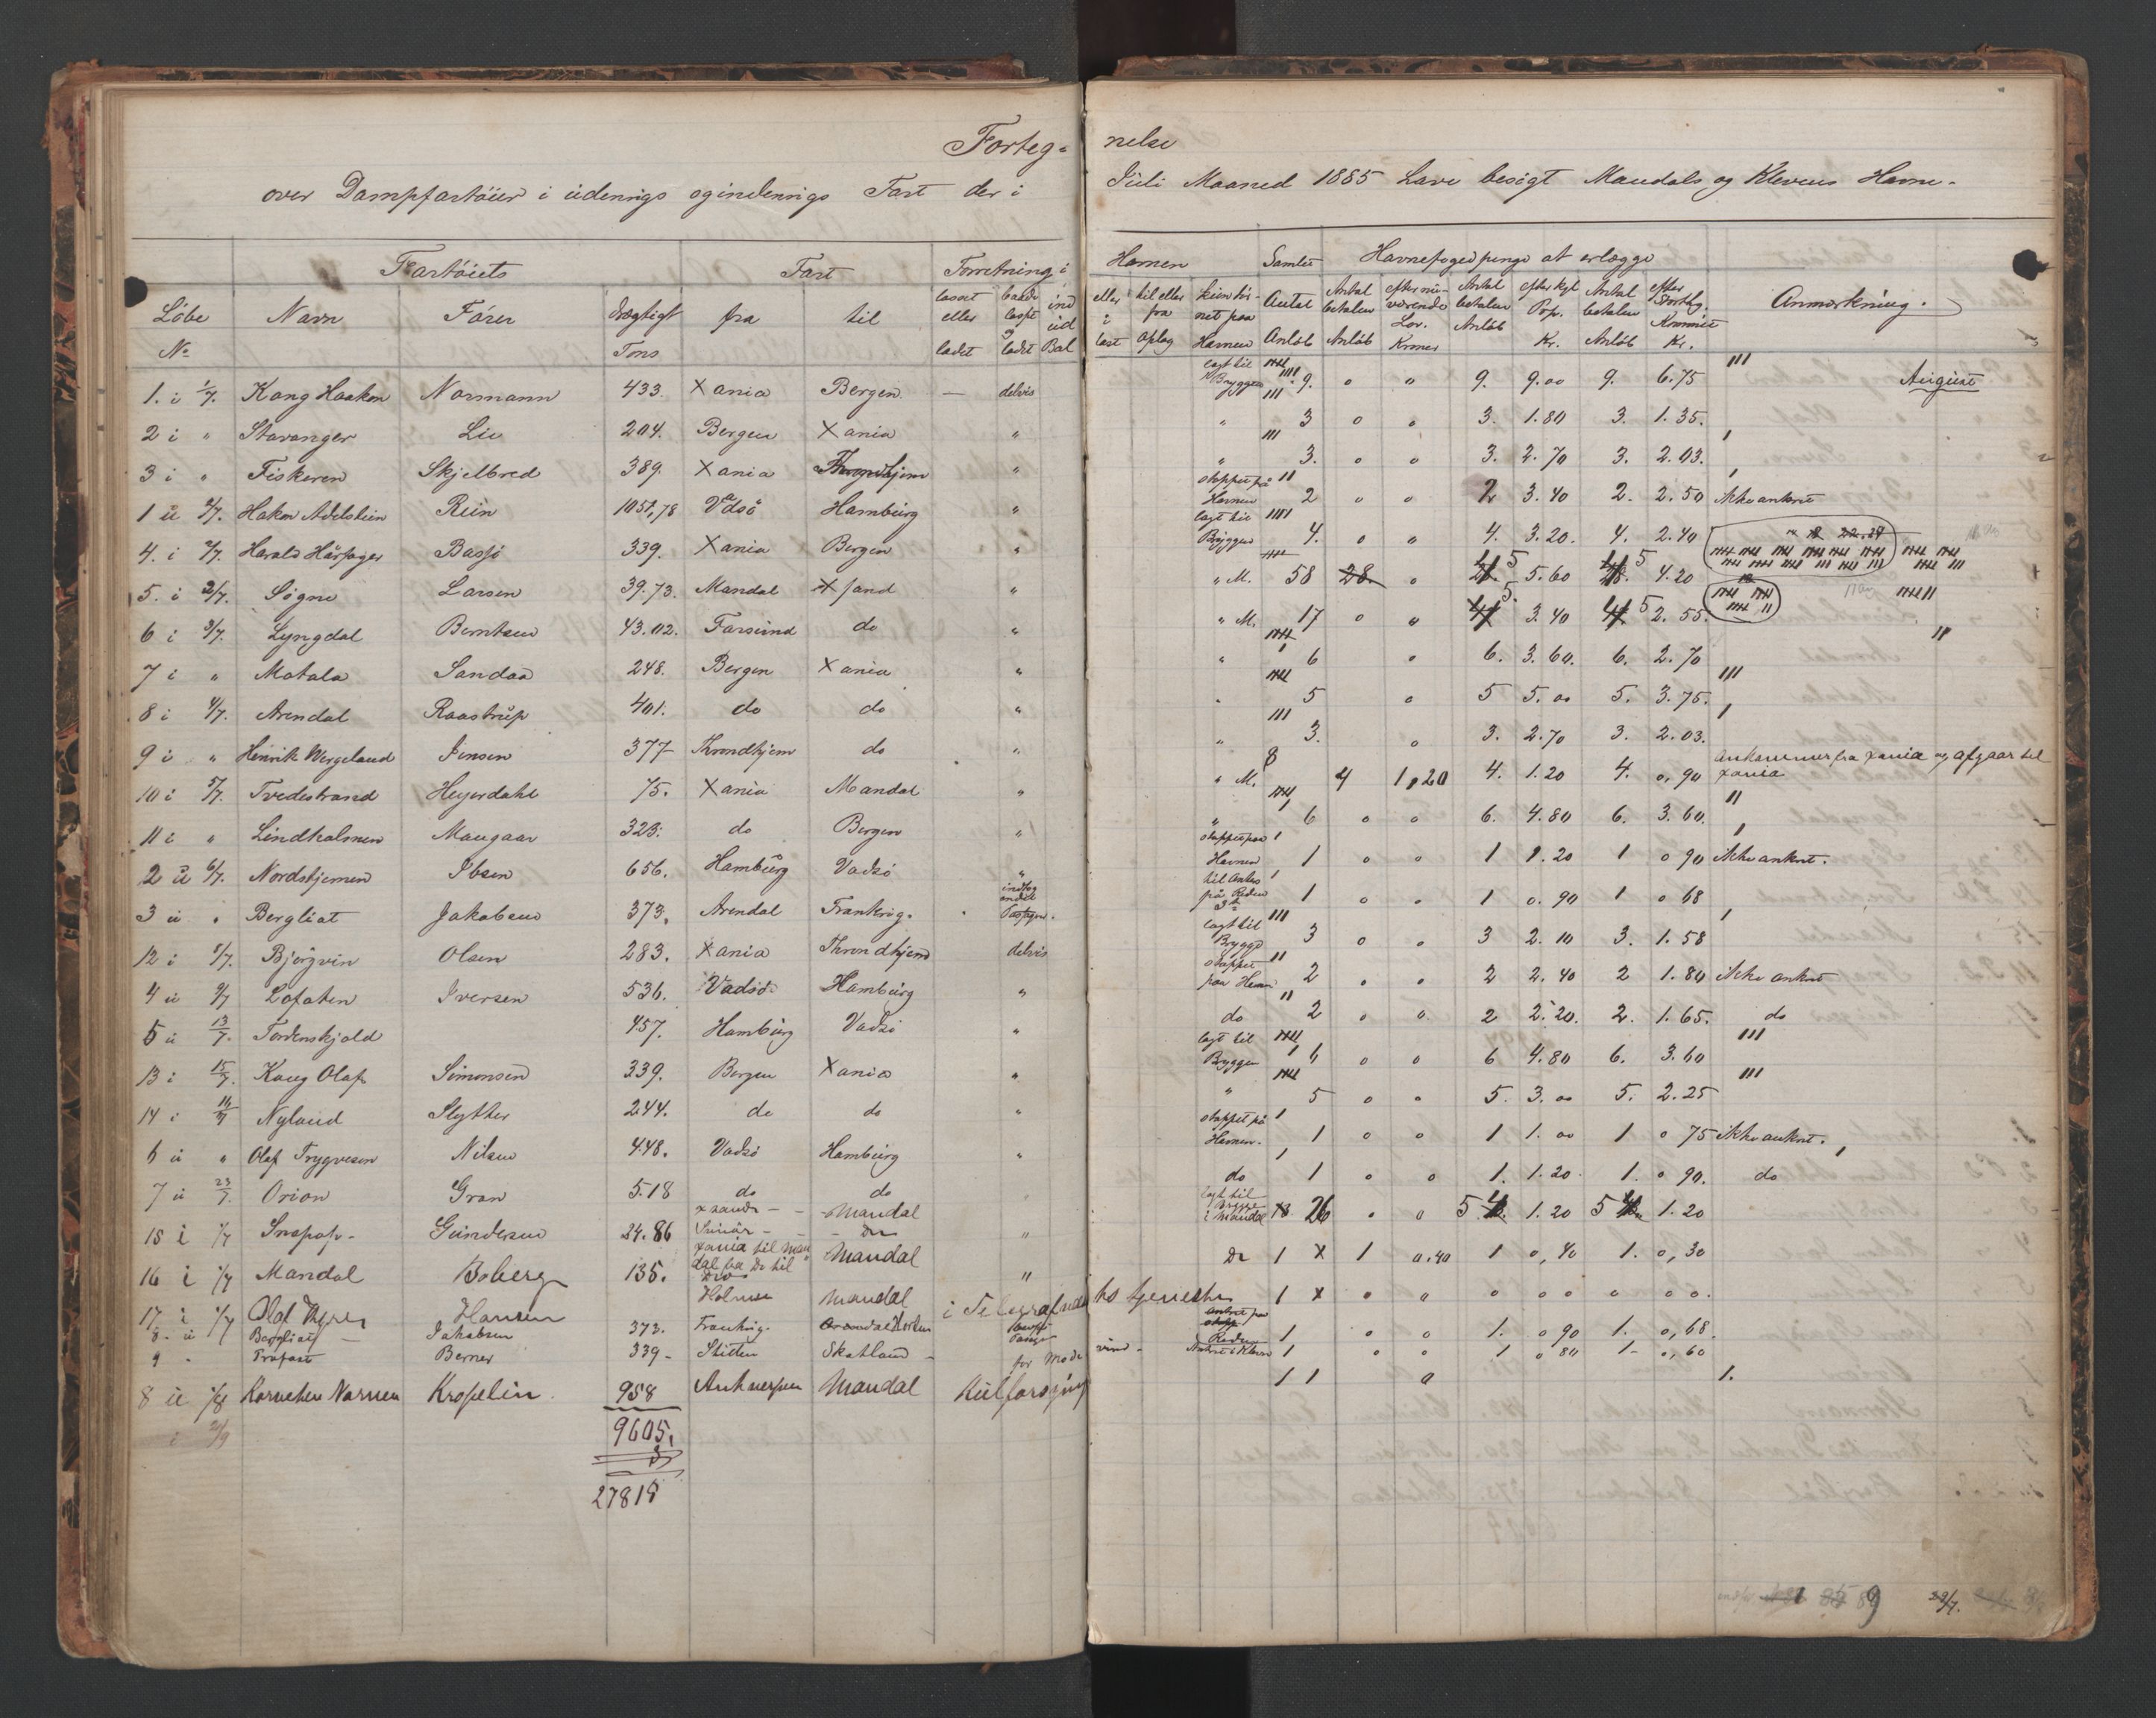 Forteg-
nelse
over Dampfartöier i udenrigs og indenrigs Fart der i
Juli Maaned 1885 have besögt Mandals og Klevens Havne.
Fartöiets Fart Forretning i
Havnen Samlet Havnefogedpenge at erlægge
Löbe No Navn Förer Drægtigt Tons fra til losset eller ladet baade losset og ladet ind ud Bal
eller i last til eller fra oplag kun för- net paa Havnen Antal Anlöb Antal betalen Anlöb efter nu- værende Lov. Kroner Antal betalen Anlöb efter kgl Prp. Kr. Antal betalen Anlöb efter Storth. Kommite Kr. Anmærkning.
1. i 1/7. Kong Haakon Normann 433. Xania Bergen — delvis lagt til Bryggen 9. 0 0 9. 9.00 9. 6.75 August
2 i " Stavanger Lie 204. Bergen Xania " " 3 0 0 3. 1.80 3. 1.35.
3 i " Fiskeren Skjelbred 389. Xania Throndhjem " " 3. 0 0 3. 2.70 3. 2.03.
1 u 2/7. Hakon Adelstein Rein 1051,78 Vadsö Hamburg " stoppet på Havnen 2 0 0 2 3.40 2. 2.50 ikke ankret
4. i 2/7. Harald Hårfager Bassö 339. Xania Bergen " lagt til Bryggen 4. 0 0 4. 3.20. 4. 2.40
5. i 2/7. Sögne Larsen 39.73. Mandal Xsand " " M. 58 28 0 5 5.60 5 4.20
6 i 3/7. Lyngdal Berntsen 43.02. Farsund do " " M. 17 0 0 5. 3.40 5 2.55.
7 i " Motala Sandaa 248. Bergen Xania " " 6 0 6. 3.60. 6. 2.70
8 i 4/7. Arendal Raastrup 401. do do " " 5 0 5 5.00 5. 3.75.
9 i " Henrik Wergeland Jensen 377 Throndhjem do " " 3. 0 3. 2.70 3. 2.03.
10 i 5/7. Tvedestrand Heyerdahl 75. Xania Mandal " " M. 8 4 1,20 4. 1.20 4. 0,90 Ankommer fra Xania og afgaar til Xania
11 i " Lindholmen Maugaar 323. do Bergen " " 6 0 0 6. 4.80 6. 3.60.
2 u 6/7. Nordstjernen Ibsen 656. Hamburg Vadsö " stoppet paa Havnen 1 0 0 1 1.20 1 0 90 ikke ankret.
3 u " Bergliot Jakobsen 373. Arendal Frankrig. indtog endel Passager. til Ankers på Reden 1 0 0 1 0.90 1 0 68
12 i 8/7. Björgvin Olsen 283. Xania Throndhjem delvis lagt til Brygge 3 0 0 3 2.10 3. 1.58
4 u 9/7 Lofoten Iversen 536. Vadsö Hamburg " stoppet paa Havn 2 0 0 2 2.40 2 1.80 ikke ankret
5 u 13/7. Tordenskjold 457. Hamburg Vadsö " do 2 0 0 2 2.20. 2. 1.65. do
13 i 15/7. Kong Olaf Simonsen 339. Bergen Xania " lagt til Bryggen 6 0 0 6 4.80 6. 3.60
14 i 16/7 Nyland Slyther 244. do do " " 5 0 0 5. 3.00 5. 2.25
6 u " Olaf Trygvesen Nilsen 448. Vadsö Hamburg " stoppet på Havnen. 1 0 0 1 1.00 1 0 75 ikke ankret.
7 u 23/7. Orion Gran 518 do do do 1 0 0 1. 1.20. 1. 0 90. do
15 i 1/7 Snapop Gundersen 24.86 Xsand - Mandal " lagt til Brygge i Mandal 26 0 0 5 1.20 5 1.20
16 i 1/7 Mandal Boberg 135. Xania til Man dal fra Do til Do Mandal " Do 1 X 1 0.40 1 0,40 1. 0,30
17 i 1/7 Olaf Kyrre Hansen Holmen Mandal i Telegrafvæsenets tjeneste 1 X 0 0 0 0 0 0 0 0.
8. u Bergliot — Jakobsen 373. Frankrig. Horten Ankret paa Reden 1 0 0 1. 0 90 1. 0,68.
9 - Profost Berner 339 - Stettin Skotland - for Mod vind - Ankret i Kleven 1 0 0 1 0 80 1- 0,60
8 u 1/8 Korvetten Nornen Kropelin. 958 Antwerpen Mandal Kulforsyning 1 1 0 1.
9605.
3
27815
i 2/9
89 29/7.